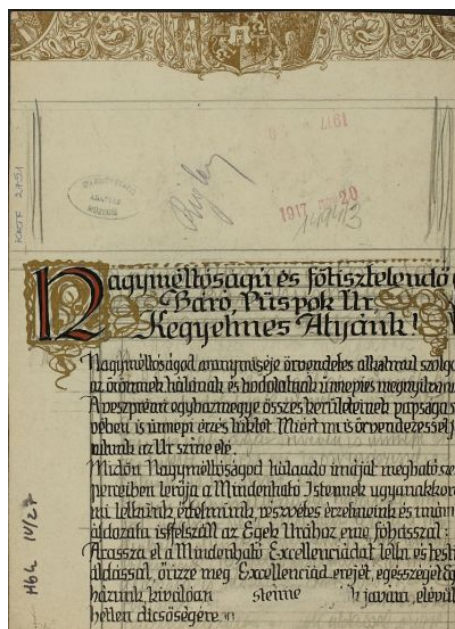 1917
1917 20
KKTF 2751
Nagyméltóságú és főtisztelendő
Báró Püspök Úr
Kegyelmes Atyánk!
Nagyméltóságod aranymiséje örvendetes alkalmul szolgá
az örömnek hálának és hódolatnak ünnepies megnyilvánu
A veszprémi egyházmegye összes kerületeinek papsága s
vében is ünnepi érzés lüktet. Miért mi is örvendezéssel j
az Úr színe elé.
Midőn Nagyméltóságod hálaadó imáját megható sze
perceiben lerója a Mindenható Istennek ugyanakkor
mi lelkünk értelmünk, részvétes érzelmeink és imáin
áldozata is felszáll az Egek Urához eme fohásszal:
Árassza el a Mindenható Excellenciádat lelki és testi
áldással, őrizze meg Excellenciád erejét, egészségét Eg
házunk kiválóan javára, elévül
hetlen dicsőségére.
Hbh IV/27